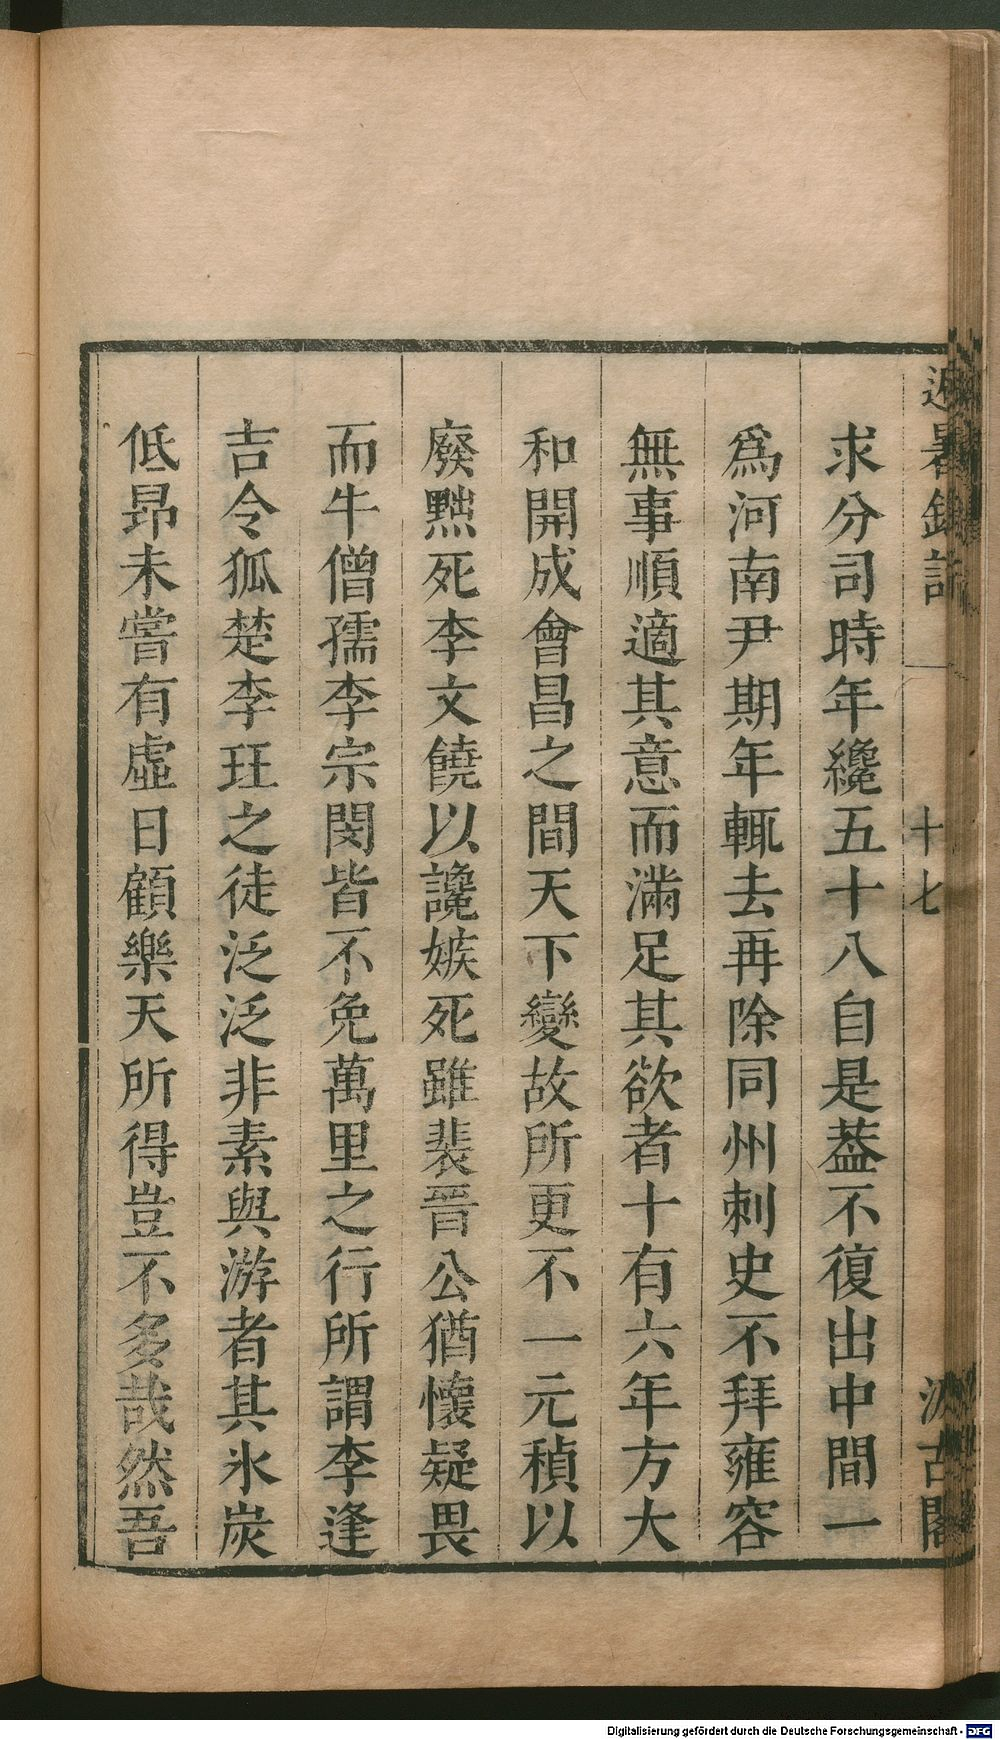 避暑錄話
十七
汲古閣
求分司時年纔五十八自是葢不復出中間一
爲河南尹期年輒去再除同州刺史不拜雍容
無事順適其意而滿足其欲者十有六年方大
和開成會昌之間天下變故所更不一元稹以
廢黜死李文饒以讒嫉死雖裴晉公猶懷疑畏
而牛僧孺李宗閔皆不免萬里之行所謂李逢
吉令狐楚李珏之徒泛泛非素與游者其氷炭
低昂未嘗有虛日顧樂天所得豈不多哉然吾
Digitalisierung gefördert durch die Deutsche Forschungsgemeinschaft - DFG